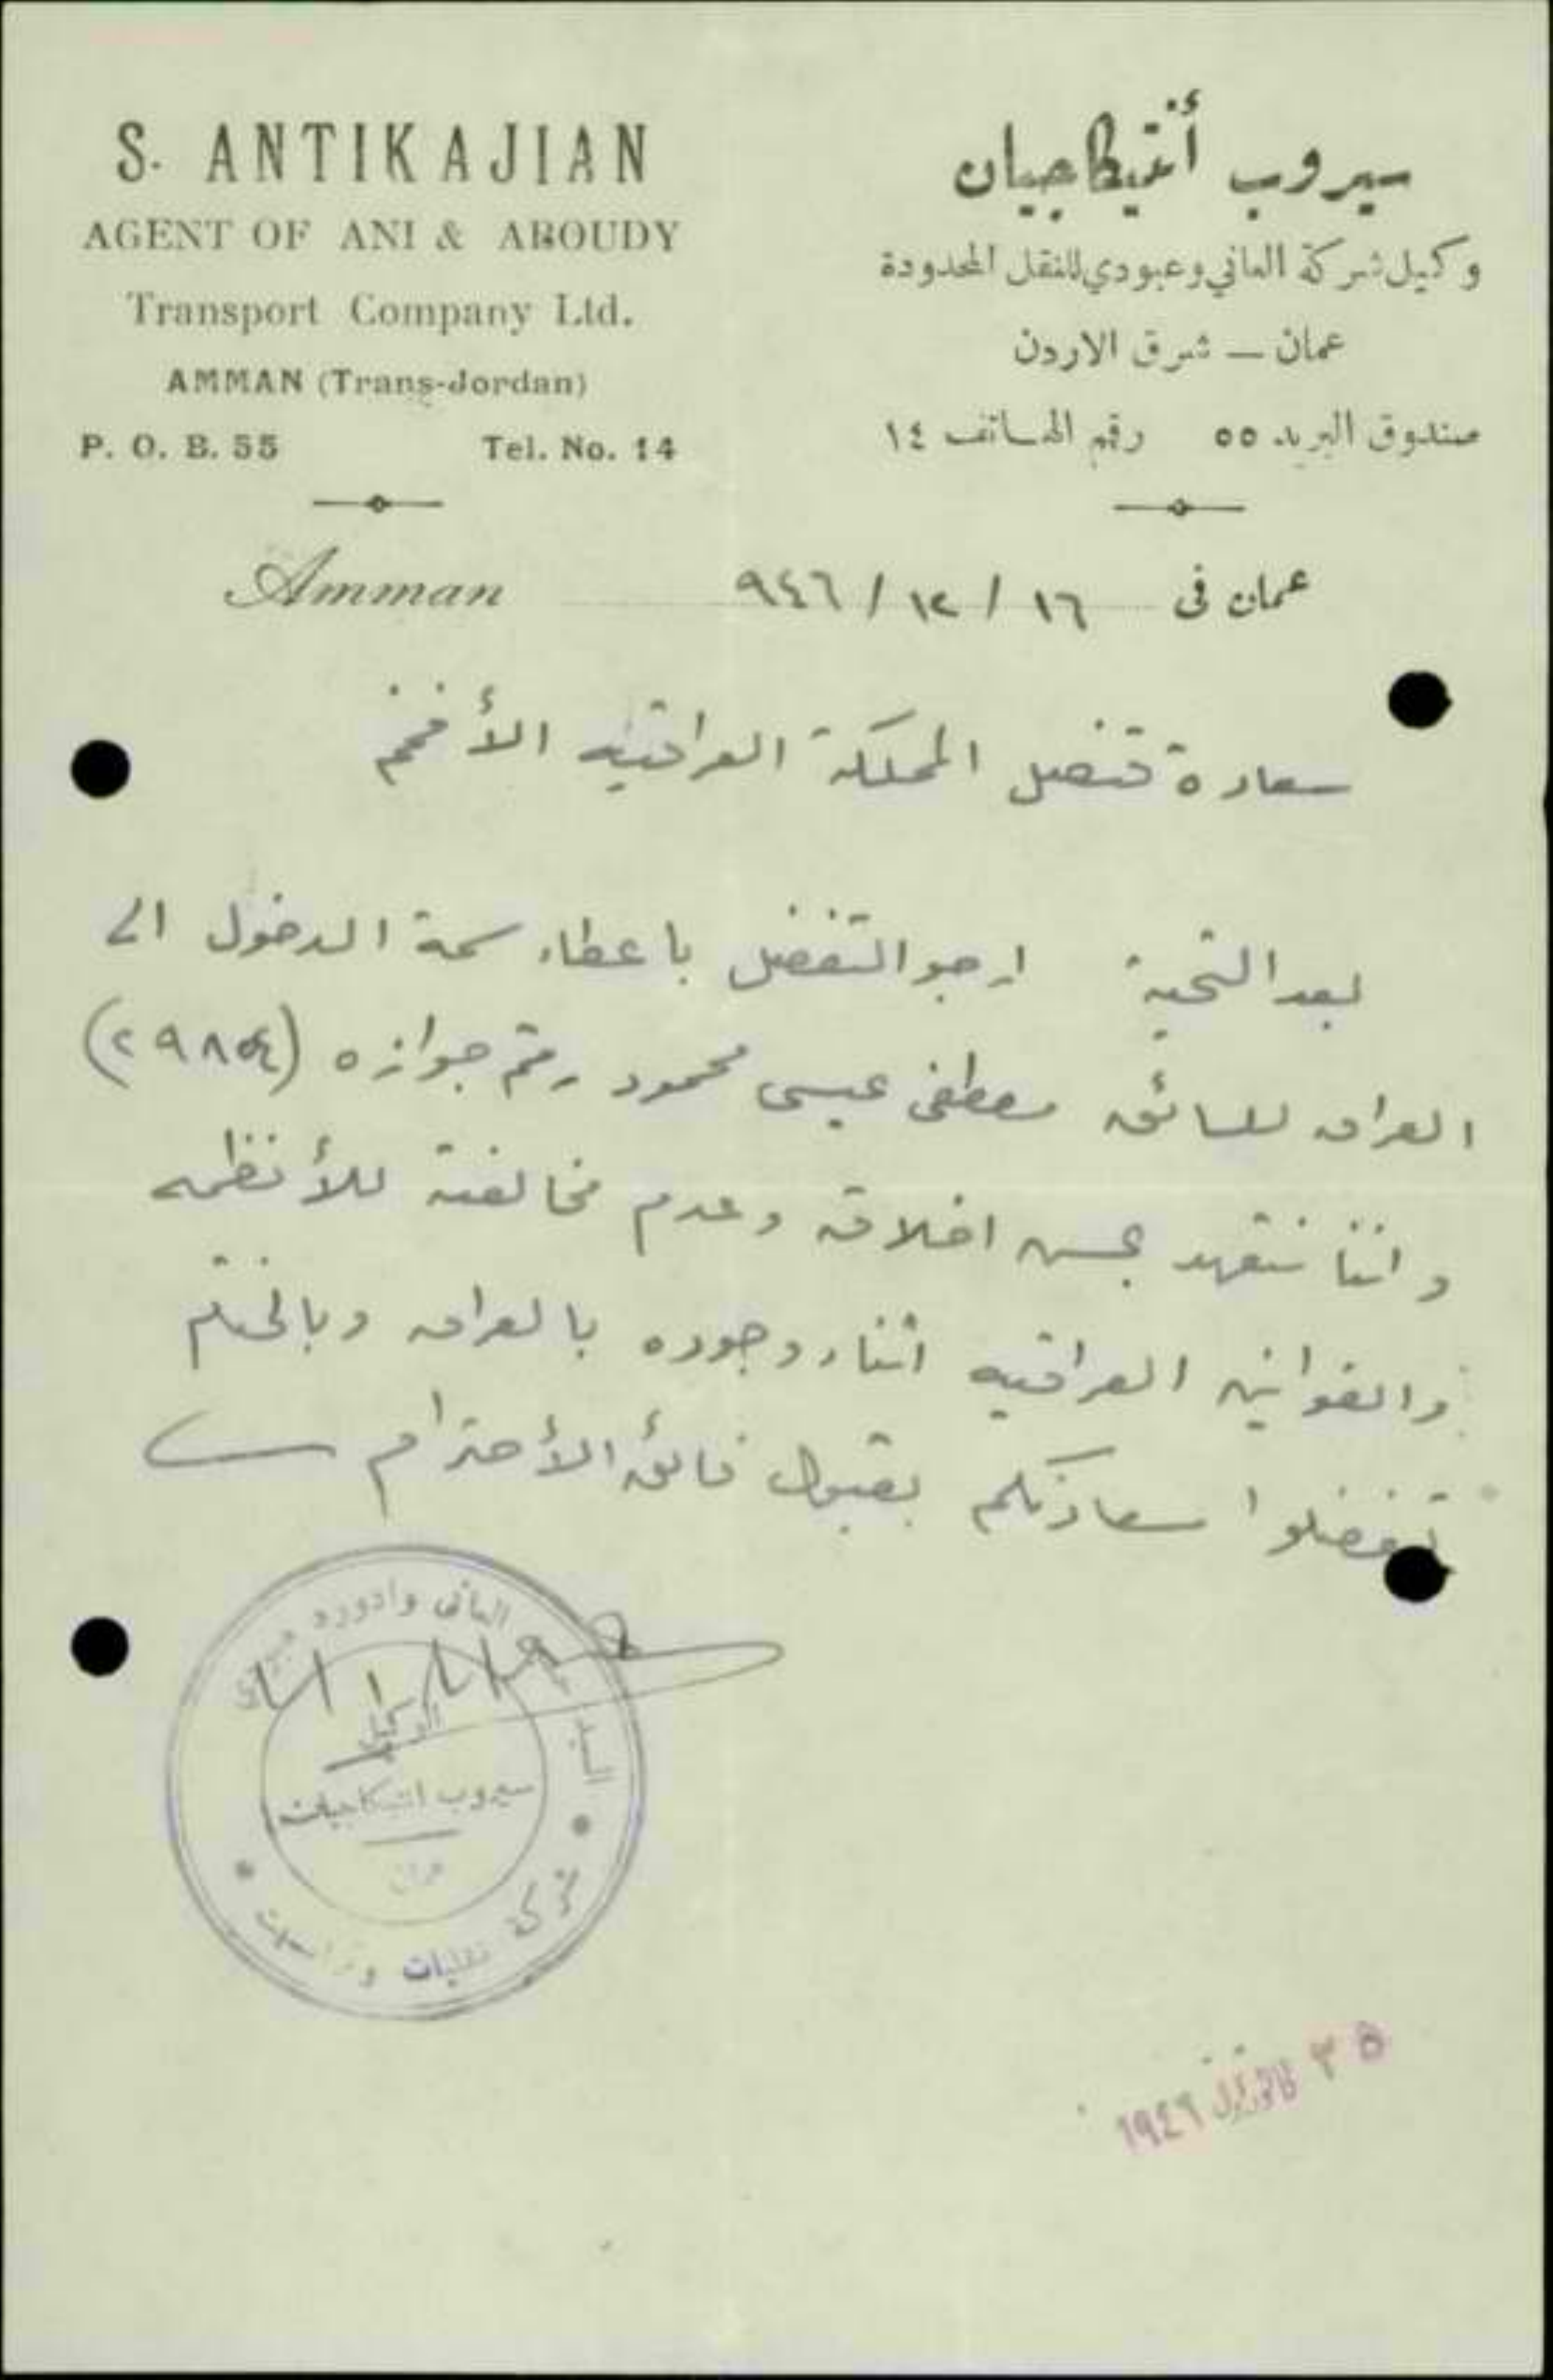 S. ANTIKAJIAN
AGENT OF ANI & ABOUDY
Transport Company Ltd.
AMMAN (Trans-Jordan)
P. O. B. 55 Tel. No. 14
سيروب أنتيكاجيان
وكيل شركة العاني وعبودي للنقل المحدودة
عمان — شرق الاردن
صندوق البريد ٥٥ رقم الهاتف ١٤
Amman
عمان فى ١٦ / ١٢ / ٩٤٦
سعادة قنصل المملكة العراقيه الأفخم
بعد التحية ارجو التفضل باعطاء سمة الدخول الى
العراق للسائق مصطفى عيسى محمود رقم جوازه
واننا نتعهد بحسن اخلاقه وعدم مخالفته للأنظمه
والقوانين العراقيه اثناء وجوده بالعراق وبالختام
تفضلوا سعادتكم بقبول فائق الأحترام
العاني وادورد عبودي
الوكيل
سيروب انتيكاجيان
عمان
شركة نقليات
كانون الاول ١٩٤٦